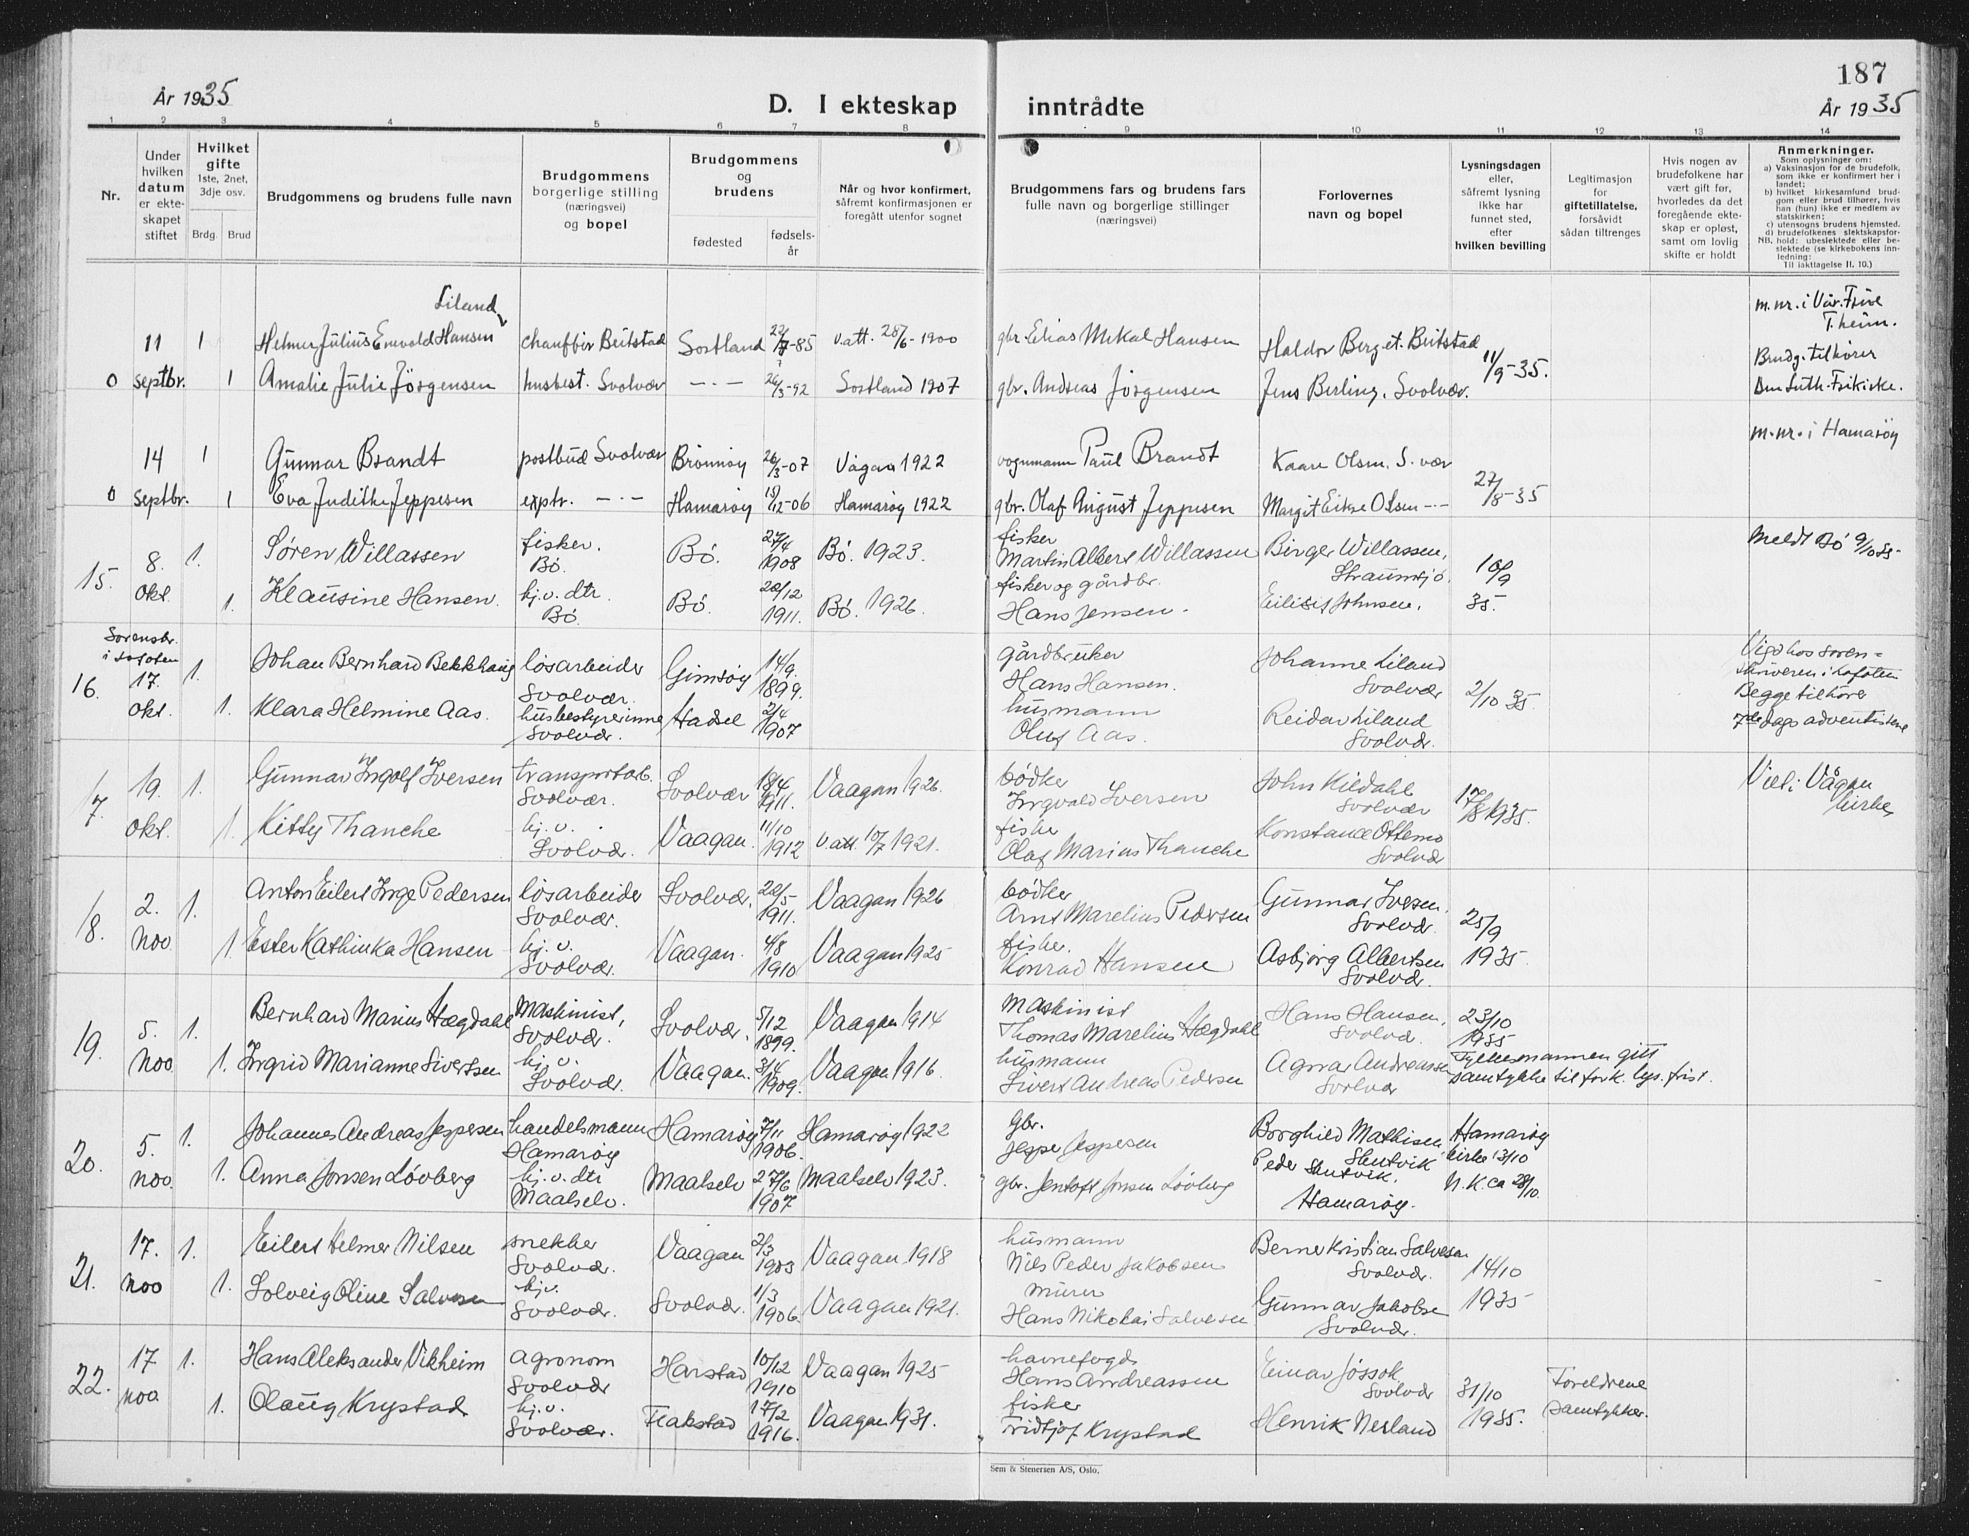 187
År 1935
D. I ekteskap inntrådte
År 1935
1 2 3 4 5 6 7 8 9 10 11 12 13 14
Nr.
Under hvilken datum er ekteskapet stiftet
Hvilket gifte
1ste, 2net, 3dje osv.
Brdg. Brud
Brudgommens og brudens fulle navn
Brudgommens borgerlige stilling (næringsvei) og bopel
Brudgommens og brudens
fødested
fødselsår
Når og hvor konfirmert, såfremt konfirmasjonen er foregått utenfor sognet
Brudgommens fars og brudens fars fulle navn og borgerlige stillinger (næringsvei)
Forlovernes navn og bopel
Lysningsdagen eller, såfremt lysning ikke har funnet sted, efter hvilken bevilling
Legitimasjon for giftetillatelse, forsåvidt sådan tiltrenges
Hvis nogen av brudefolkene har vært gift før, hvorledes da det foregående ekteskap er opløst, samt om lovlig skifte er holdt
Anmerkninger.
Som oplysninger om:
a) Vaksinasjon for de brudefolk, som ikke er konfirmert her i landet;
b) hvilket kirkesamfund brudgom eller brud tilhører, hvis han (hun) ikke er medlem av statskirken;
c) utensogns brudens hjemsted.
d) brudefolkenes slektskapsforhold: ubeslektede eller beslektede (se kirkebokens innledning:
NB.
Til iakttagelse II. 10.)
Liland
11 1 Helmer Julius Enevold Hansen chauffør Beitstad Sortland 22/7-85 v.att. 28/6-1900 gbr. Elias Mekal Hansen Haldor Berg et. Beitstad 11/9-35. m.nr. i Vår Frue T.heim.
0 septbr. 1 Amalie Julie Jörgensen husbest. Svolvær —·— 26/3-92 Sortland 1907 gbr. Andreas Jörgensen Jens Berling, Svolvær. Brudg. tilhører
Den Luth. Frikirke.
14 1 Gunnar Brandt postbud Svolvær Brønnøy 26/3-07 Vågan 1922 vognmann Paul Brandt Kaare Olsen. S.vær 27/8-35 m.nr. i Hamarøy
0 septbr. 1 Eva Judithe Jeppesen exptr. —·— Hamarøy 18/12-06 Hamarøy 1922 gbr. Olaf August Jeppesen Margit Olsen —·—
15. 8. okt. 1. Søren Willassen fisker. Bø. Bø. 27/4 1908 Bø. 1923. fisker Martin Albert Willassen Birger Willassen, Straumsjø. 10/9 35. Meldt Bø 9/10 35
1. Klausine Hansen. hj.v. dtr. Bø. Bø. 20/12 1911. Bø. 1926. fisker og gårdbr. Hans Jensen. Johnsen.
Sorenskr. i Lofoten
16. 17. okt. 1. Johan Bernhard Bekkhaug løsarbeider Svolvær. Gimsøy 14/9 1899. gårdbruker Hans Hansen. Johanne Liland Svolvær 2/10 35. Vigd hos soren=
skriveren i Lofoten
1. Klara Helmine Aas. husbestyrerinne Svolvær. Hadsel 2/4 1907 husmann Oluf Aas. Reidar Liland Svolvær. Begge tilhører
7de dags adventistene
17. 19. okt. 1. Gunnar Ingolf Iversen transportarb. Svolvær. Svolvær 18/4 1911. Vaagan 1926. bødker Ingvald Iversen John Kildahl Svolvær 17/8 1935. Viet i Vågan kirke
1. Kitty Thanche hj.v. Svolvær. Vaagan. 11/10 1912 v.att. 10/7 1921. fisker Olaf Marius Thanche Konstance Ottemo Svolvær
18. 2. nov 1. Anton Eilert Inge Pedersen løsarbeider Svolvær. Svolvær. 20/5 1911. Vaagan 1926 bødker Arnt Marelius Pedersen Gunnar Iversen. Svolvær. 25/9 1935
1. Ester Kathinka Hansen hj.v. Svolvær. Vaagan. 4/8 1910 Vaagan 1925 fisker. Konrad Hansen Asbjørg Albertsen Svolvær.
19. 5. nov. 1. Bernhard Marius Hægdahl Maskinist, Svolvær. Svolvær. 5/12 1899. Vaagan 1914 Maskinist Thomas Marelius Hægdahl Hans Hansen, Svolvær. 23/10 1935
1. Ingrid Marianne Sivertsen hj.v. Svolvær. Vaagan. 3/4 1909. Vaagan 1916. husmann Sivert Andreas Pedersen Agnar Andreassen Svolvær Fylkesmannen gitt
samtykke til fork. lys. frist.
20. 5. nov. 1. Johannes Andreas Jeppesen handelsmann Hamarøy Hamarøy 7/11 1906. Hamarøy 1922 gbr. Jeppe Jeppesen Borghild Mathisen Skutvik Hamarøy kirke 13/10
1. Anna Jonsen Løvberg hj.v. dtr Maalselv. Maalselv 27/6 1907 Maalselv 1923. gbr. Jentoft Jonsen Løvberg Peder Skutvik. Hamarøy. N.K. ca 20/10.
21. 17. nov 1. Eilert Helmer Nilsen snekker Svolvær. Vaagan 2/3 1903 Vaagan 1918 husmann Nils Peder Jakobsen Berner Kristian Salvesen Svolvær. 14/10 1935
1. Solveig Oline Salvesen hj.v. Svolvær. Svolvær. 1/3 1906. Vaagan 1921. murer Hans Nikolai Salvesen Gunnar Jakobsen Svolvær.
22. 17 nov. 1. Hans Aleksander Vikheim agronom Svolvær Harstad 10/12 1910 Vaagan 1925 havnefogd Hans Andreassen Einar Jøssok Svolvær 31/10 1935. Foreldrene
samtykker.
1. Olaug Krystad hj.v. Svolvær. Flakstad 17/2 1916. Vaagan 1931. fisker Fridtjof Krystad Henrik Nesland
Sem & Stenersen A/S, Oslo.